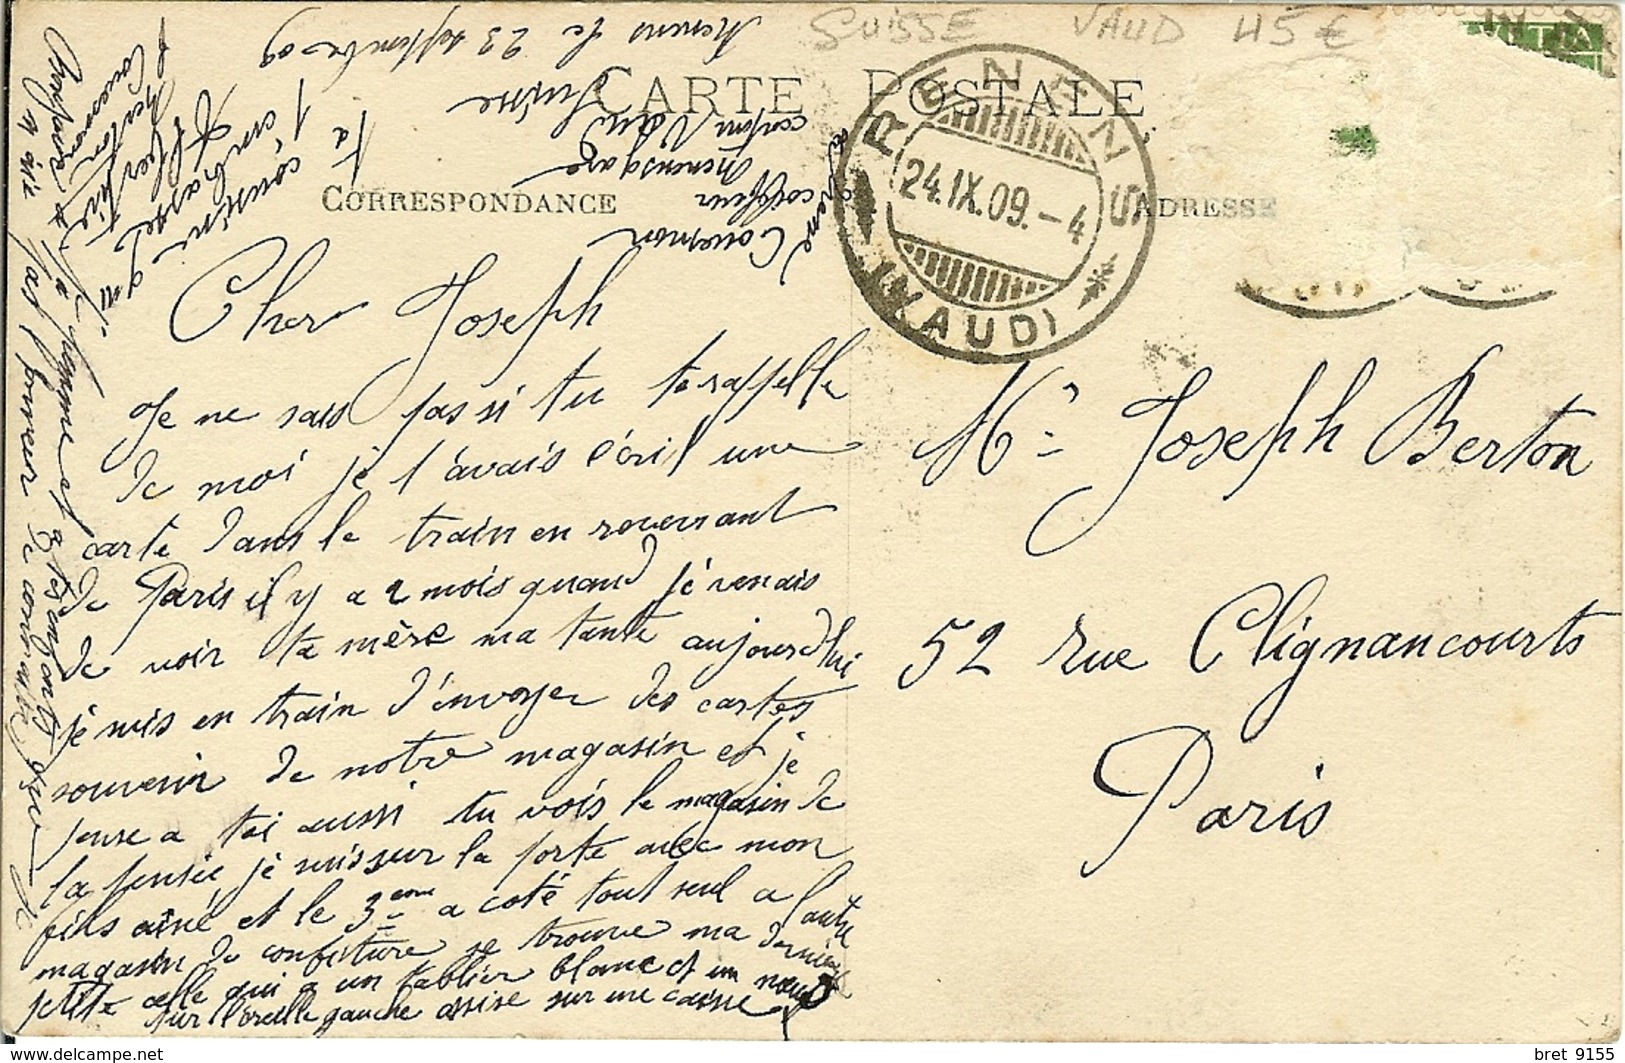 SUISSE VAUD 45 €
CARTE POSTALE
CORRESPONDANCE
ADRESSE
RENENS
24.IX.09.-4
(VAUD)
HELVETIA
Renens le 23 septembre 09
Cher Joseph
Je ne sais pas si tu te rappelle
de moi je t'avais écrit une
carte dans le train en revenant
de Paris il y a 2 mois quand je venais
de voir ta mère ma tante aujourd'hui
je suis en train d'envoyer des cartes
souvenir de notre magasin et je
pense a toi aussi tu vois le magasin de
la pensée je suis sur la porte avec mon
fils ainé et le 3eme a coté tout seul a l'autre
magasin de confiture se trouve ma dernière
petite celle qui a un tablier blanc et un nœud
sur l'oreille gauche assise sur une caisse
Bonjour a ta femme et a tes enfants que
je n'ai pas
ta cousine qui
t'embrasse
Couesnon
Berton
René Couesnon
coiffeur
Renens gare
canton Vaud
Suisse
Mr Joseph Berton
52 rue Clignancourts
Paris
bret 9155
www.delcampe.net